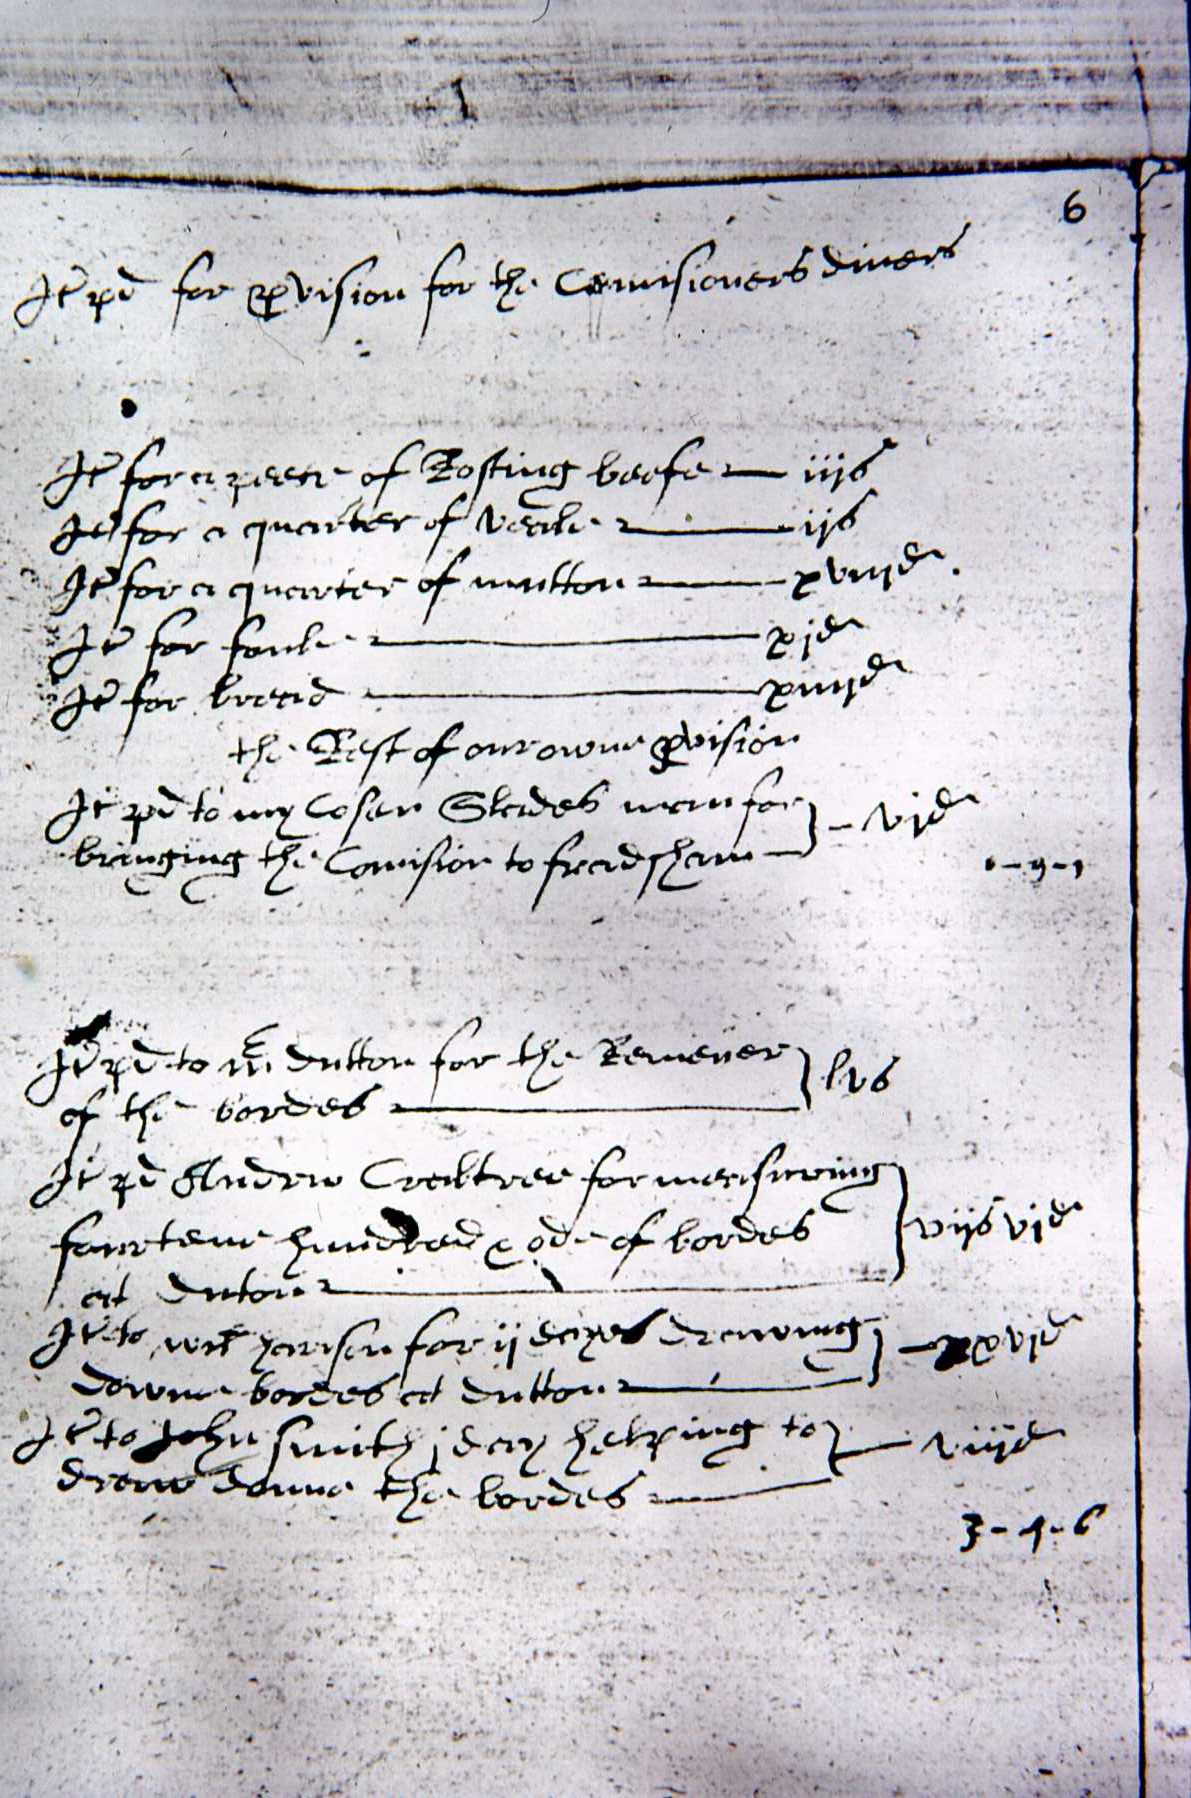 6
It pd for pvision for the Comisioners diners
It for a peece of Rosting beefe — iijs
It for a quarter of veale — ijs
It for a quarter of mutton — xviijd
It for foule — xjd
It for bread — xiiijd
the Rest of our owne pvision
It pd to my Cosen Slades man for } – vjd
bringing the Comision to fradsham
0 - 9 - 1
It pd to mr dutton for the Remener } lvs
of the bordes —
It pd Andrw Crabtree for measuring
fourtene hundred & ode of bordes } vijs vjd
at duton —
It to willm harison for ij dayes drawing } – xvjd
downe bordes at dutton —
It to John smith j day helping to } — viijd
draw downe the bordes —
3 - 4 - 6